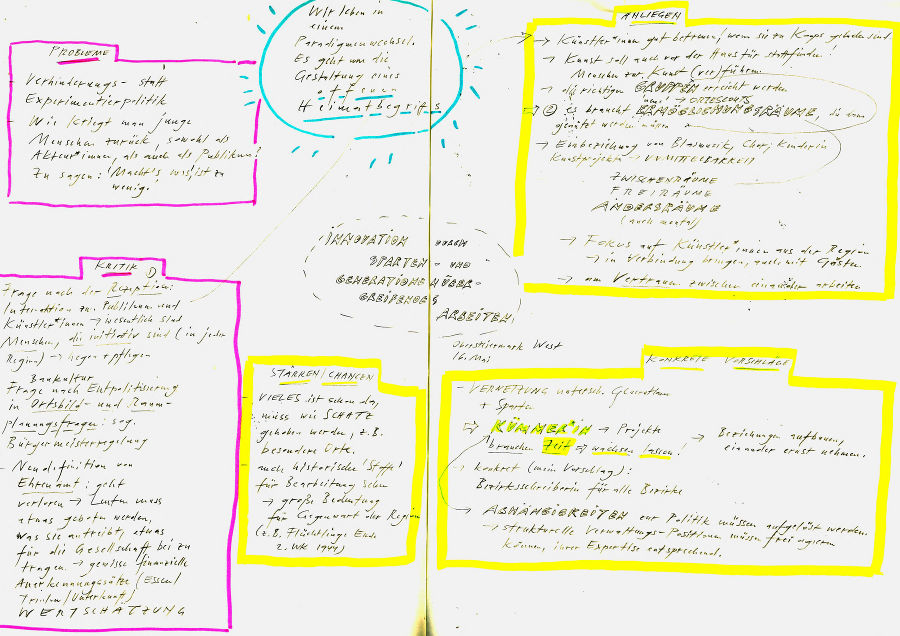 PROBLEME
Verhinderungs- statt
Experimentierpolitik
- Wie kriegt man junge
Menschen zurück, sowohl als
Akteur*innen, als auch als Publikum?
Zu sagen: "Macht's was", ist zu
wenig.
Wir leben in
einem
Paradigmenwechsel.
Es geht um die
Gestaltung eines
offenen
Heimatbegriffs
ANLIEGEN
→ Künstler*innen gut betreuen, wenn sie zu Kaps geladen sind
→ Kunst soll auch vor der Haustür stattfinden!
Menschen zur Kunst (ver)führen
→ die richtigen GRUPPEN erreicht werden
→ ORTSSCOUTS
→ ② es braucht ERMÖGLICHUNGSRÄUME, die dann
genützt werden müssen
→ Einbeziehung von Blasmusik, Chor, Kindern in
Kunstprojekte → UNMITTELBARKEIT
ZWISCHENRÄUME
FREIRÄUME
ANDERSRÄUME
(auch mental)
→ Fokus auf Künstler*innen aus der Region
→ in Verbindung bringen, auch mit Gästen
→ am Vertrauen zwischen einander arbeiten
INNOVATION DURCH
SPARTEN- UND
GENERATIONENÜBER-
GREIFENDES
ARBEITEN!
Obersteiermark West
16. Mai
KRITIK ①
Frage nach der Rezeption:
Interaktion zw. Publikum und
Künstler*innen → wesentlich sind
Menschen, die initiativ sind (in jeder
Region) → hegen + pflegen
- Baukultur
Frage nach Entpolitisierung
in Ortsbild- und Raum-
planungsfragen: sog.
Bürgermeisterregelung
- Neudefinition von
Ehrenamt: geht
verloren → Leuten muss
etwas geboten werden,
was sie antreibt, etwas
für die Gesellschaft bei zu
tragen. → gewisse finanzielle
Anerkennungssätze (Essen/
Trinken/Unterkunft)
WERTSCHÄTZUNG
STÄRKEN/CHANCEN
- VIELES ist schon da,
muss wie SCHATZ
gehoben werden, z.B.
besondere Orte.
- auch historische "Stoffe"
für Bearbeitung sehen
→ große Bedeutung
für Gegenwart der Region
(z.B. Flüchtlinge Ende
2. WK 1944)
KONKRETE VORSCHLÄGE
- VERNETZUNG untersch. Generation
+ Sparten
⇒ KÜMMER*IN → Projekte
brauchen Zeit ⇒ wachsen lassen!
→ Beziehungen aufbauen,
einander ernst nehmen.
→ konkret (mein Vorschlag):
Bezirksschreiberin für alle Bezirke
→ ABHÄNGIGKEITEN zur Politik müssen aufgelöst werden.
→ strukturelle Verwaltungs-Positionen müssen frei agieren
können, ihrer Expertise entsprechend.